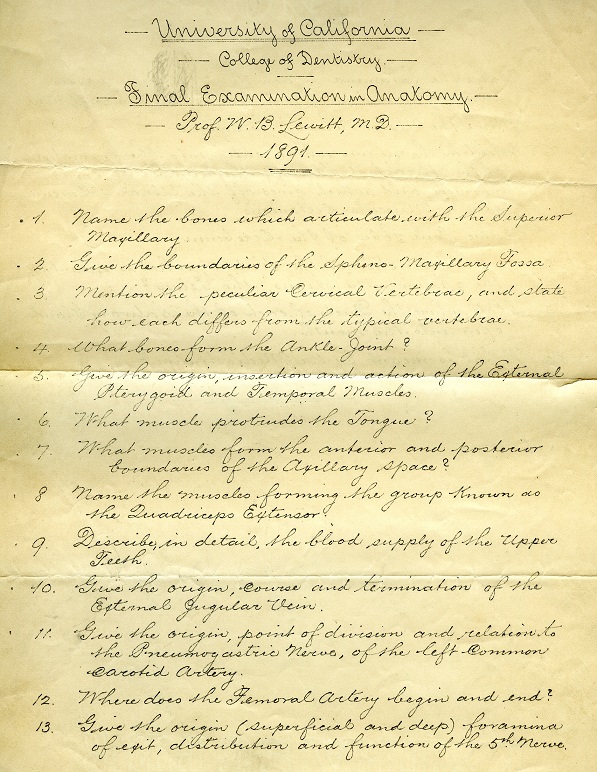 University of California
College of Dentistry.
Final Examination in Anatomy.
Prof. W. B. Lewitt, M.D.
1891.
1. Name the bones which articulate with the Superior
Maxillary
2. Give the boundaries of the Spheno-Maxillary Fossa
3. Mention the peculiar Cervical Vertebrae, and state
how each differs from the typical vertebrae.
4. What bones form the Ankle-Joint?
5. Give the origin, insertion and action of the External
Pterygoid and Temporal Muscles.
6. What muscle protrudes the Tongue?
7. What muscles form the anterior and posterior
boundaries of the Axillary space?
8 Name the muscles forming the group Known as
the Quadriceps Extensor.
9. Describe, in detail, the blood supply of the Upper
Teeth.
10. Give the origin, course and termination of the
External Jugular Vein.
11. Give the origin, point of division and relation to
the Pneumogastric Nerve, of the left Common
Carotid Artery.
12. Where does the Femoral Artery begin and end?
13. Give the origin (superficial and deep) foramina
of exit, distribution and function of the 5th Nerve.